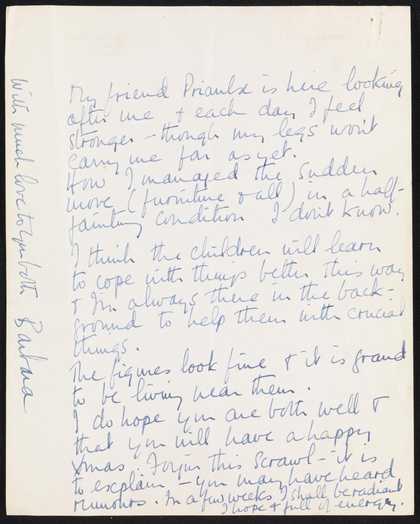 My friend Priaulx is here looking
after me & each day I feel
stronger – though my legs won't
carry me far as yet.
How I managed the sudden
move (furniture & all) in a half-
fainting condition I don't know.
I think the children will learn
to cope with things better this way
& I'm always there in the back-
ground to help them with crucial
things.
The figures look fine & it is grand
to be living near them.
I do hope you are both well &
that you will have a happy
Xmas. Forgive this scrawl – it is
to explain – you may have heard
rumours. In a few weeks I shall be radiant
I hope & full of energy.
With much love to you both
Barbara